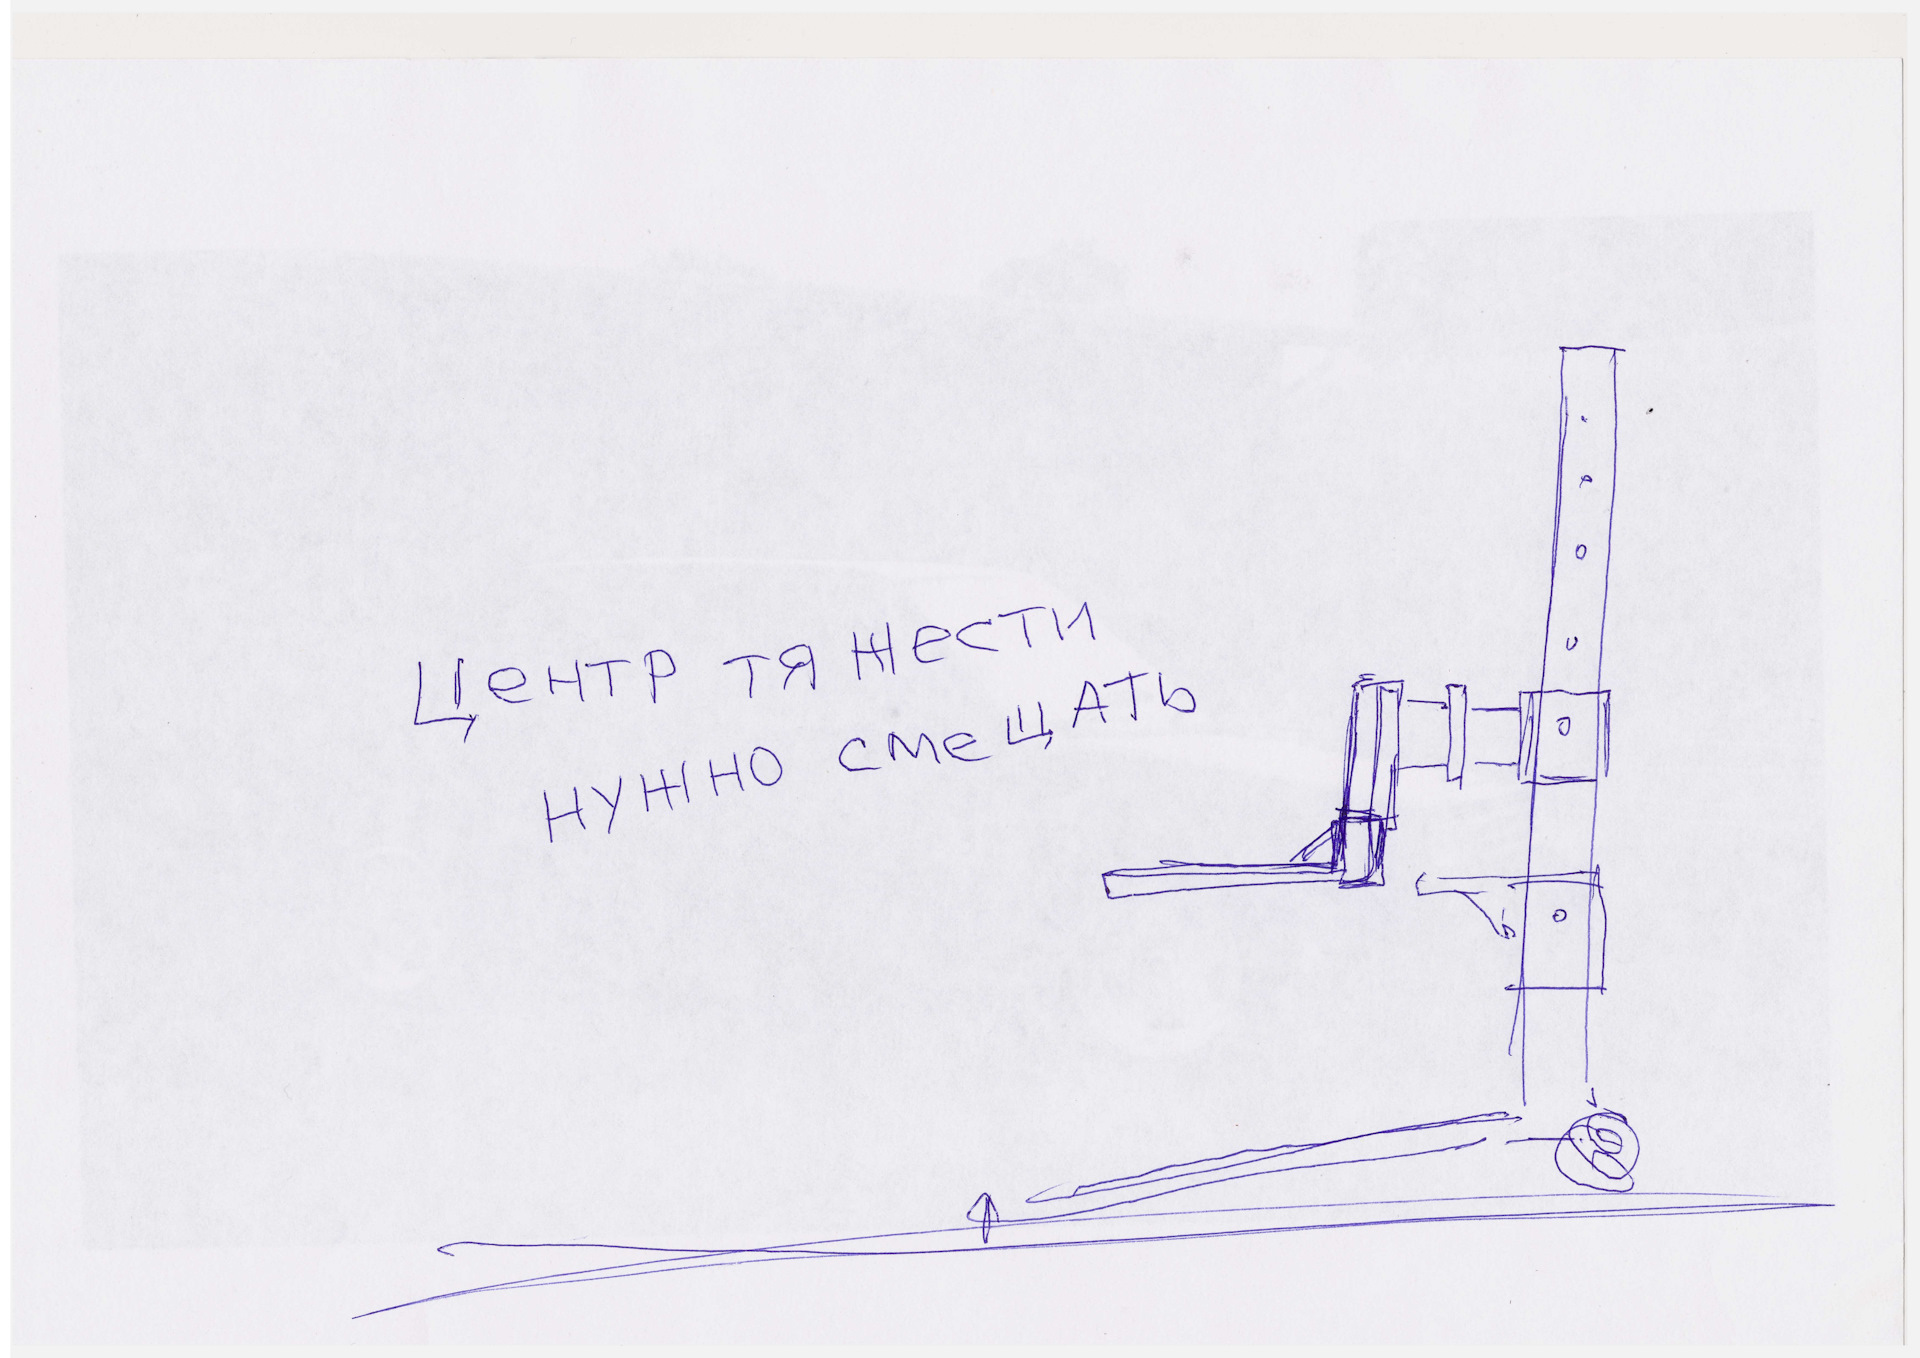 Центр тяжести
нужно смещать